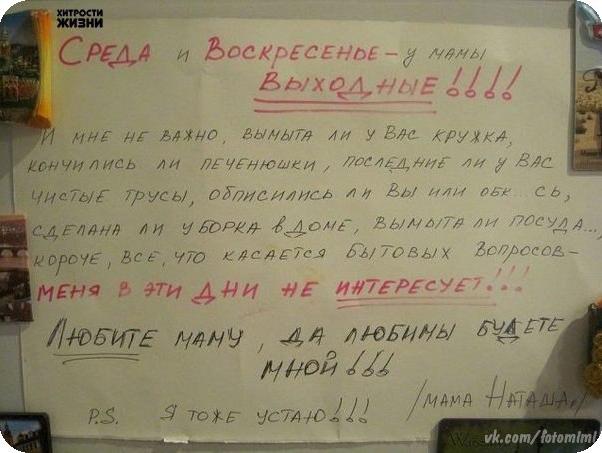 ХИТРОСТИ
ЖИЗНИ
СРЕДА И ВОСКРЕСЕНЬЕ – У МАМЫ
ВЫХОДНЫЕ!!!!
И МНЕ НЕ ВАЖНО, ВЫМЫТА ЛИ У ВАС КРУЖКА,
КОНЧИЛИСЬ ЛИ ПЕЧЕНЮШКИ, ПОСЛЕДНИЕ ЛИ У ВАС
ЧИСТЫЕ ТРУСЫ, ОБПИСИЛИСЬ ЛИ ВЫ ИЛИ ОБК...СЬ,
СДЕЛАНА ЛИ УБОРКА В ДОМЕ, ВЫМЫТА ЛИ ПОСУДА...,
КОРОЧЕ, ВСЕ, ЧТО КАСАЕТСЯ БЫТОВЫХ ВОПРОСОВ –
МЕНЯ В ЭТИ ДНИ НЕ ИНТЕРЕСУЕТ!!!
ЛЮБИТЕ МАМУ, ДА ЛЮБИМЫ БУДЕТЕ
МНОЙ!!!
/МАМА НАТАША/
P.S. Я ТОЖЕ УСТАЮ!!!
vk.com/fotomiml